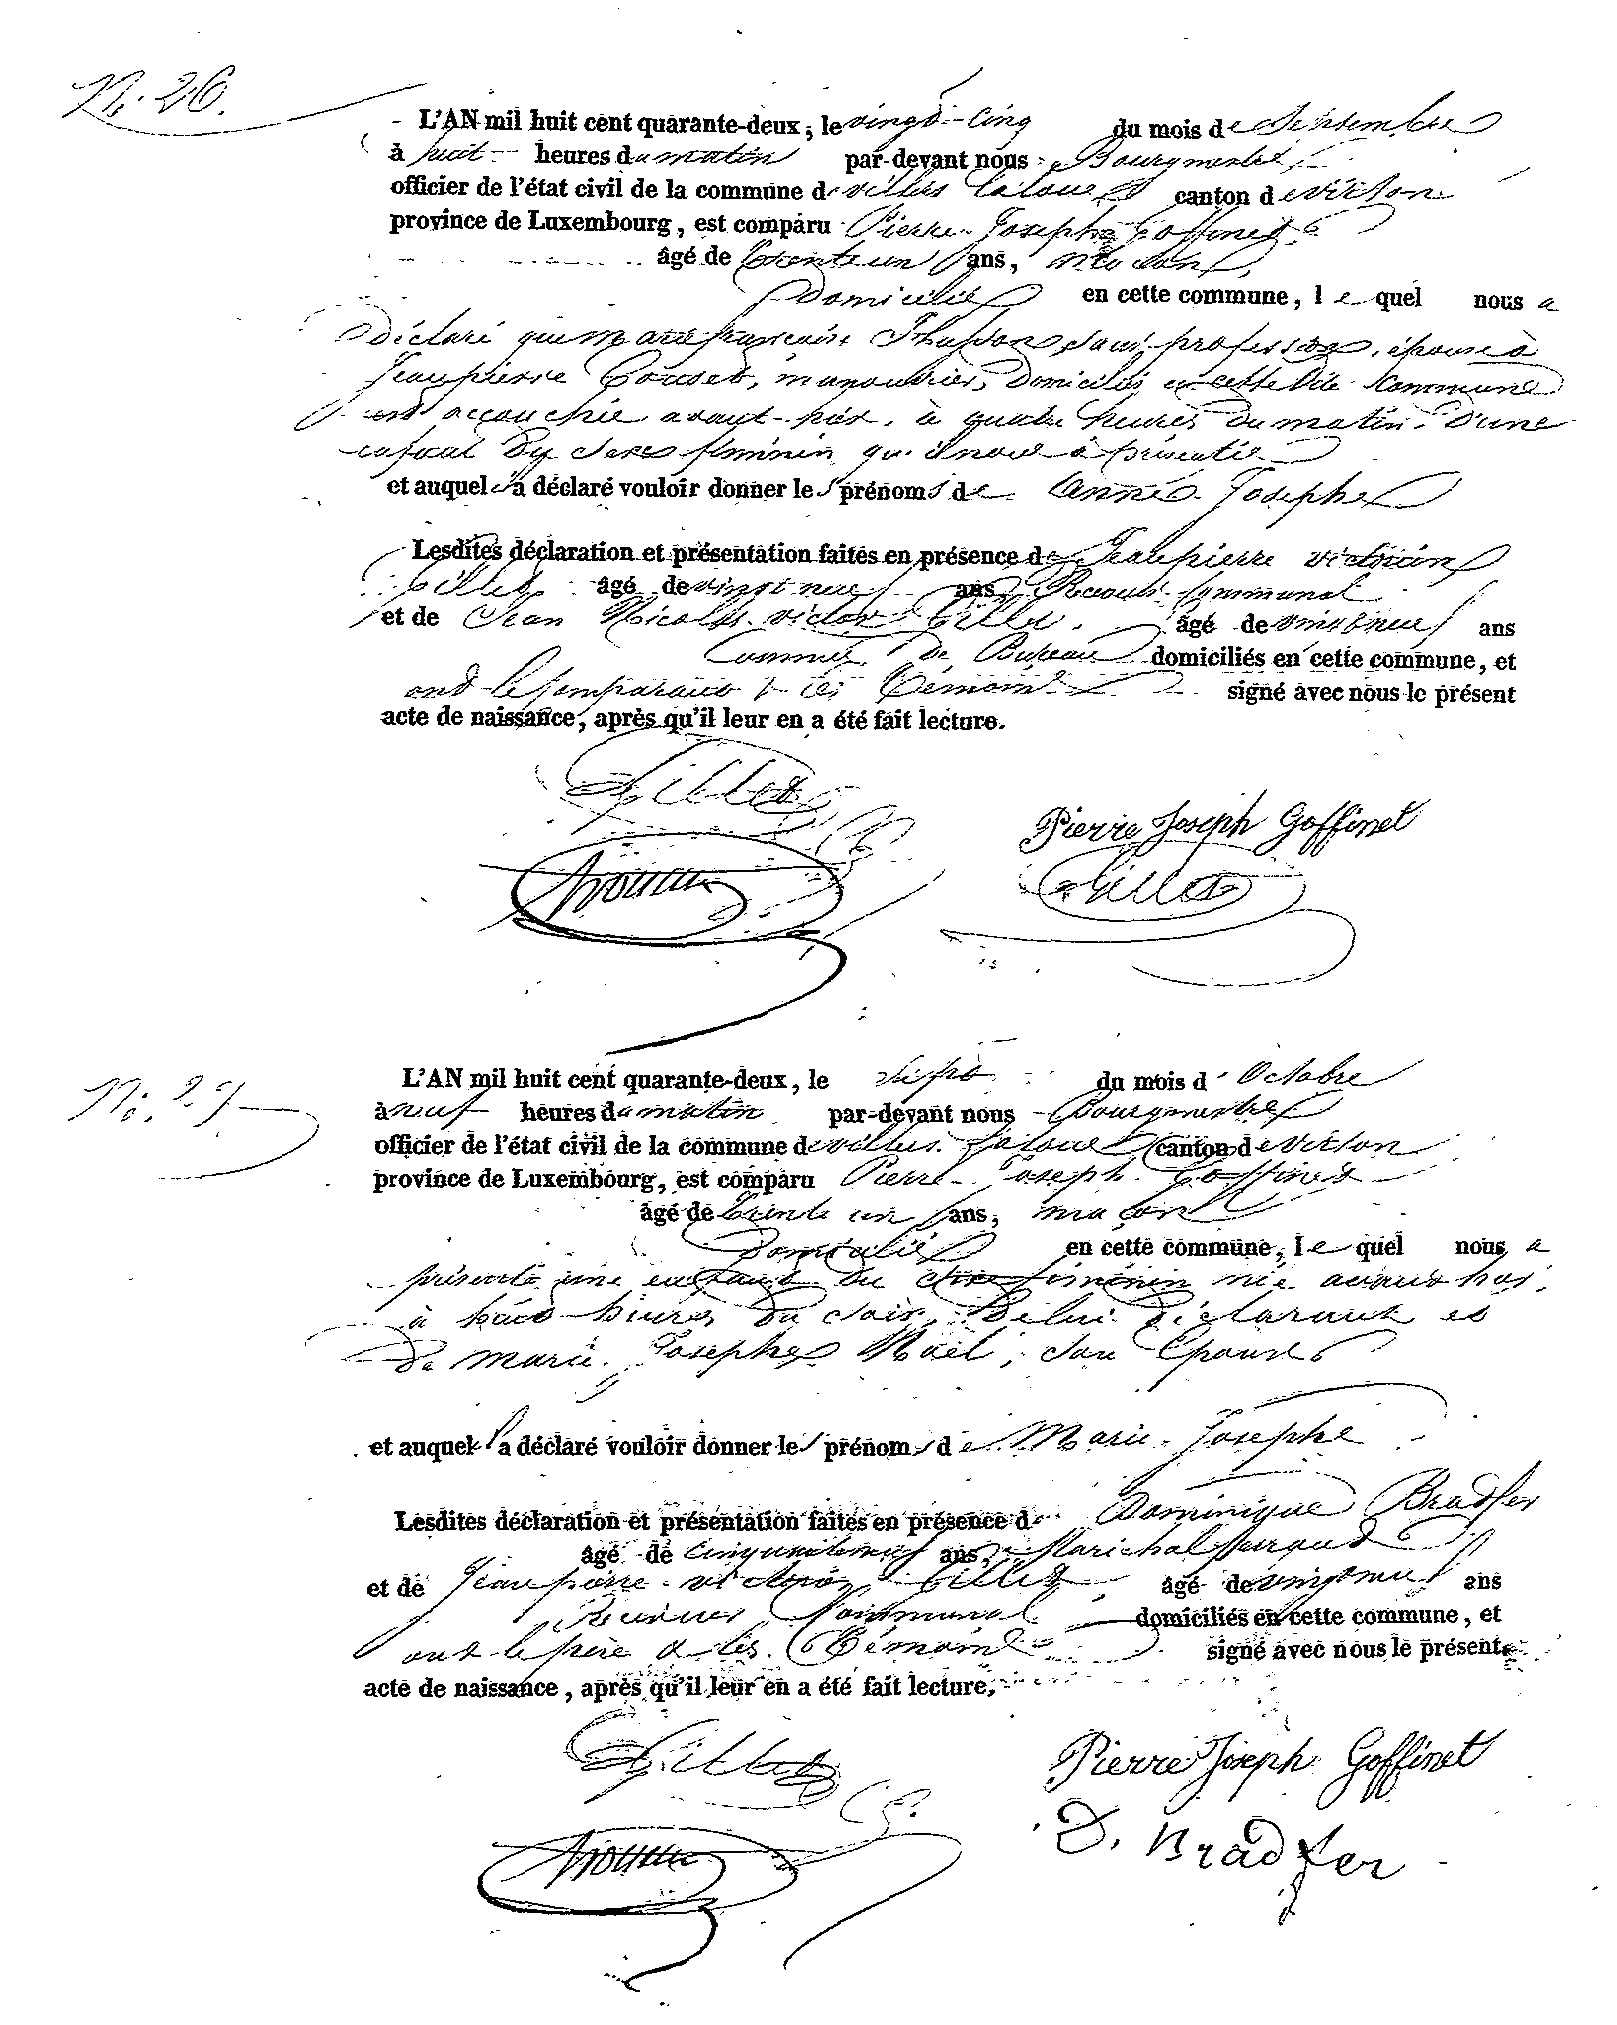 N°. 26.
L'AN mil huit cent quarante-deux, le vingt-cinq du mois de Septembre
à huit heures du matin par-devant nous Bourgmestre,
officier de l'état civil de la commune de villers la loue canton de virton
province de Luxembourg, est comparu Pierre-Joseph Goffinet
âgé de trente un ans, maçon
domicilié en cette commune, le quel nous a
déclaré que Marie françoise sans profession, épouse à
Jean pierre manouvrier, domiciliés en cette dite commune
est accouchée avant-hier, à quatre heures du matin, d'une
enfant du sexe féminin qu'il nous à présenté
et auquel il a déclaré vouloir donner les prénoms de Anne-Josephe
Lesdites déclaration et présentation faites en présence de Jean pierre victorin
Gillet âgé de vingt neuf ans Receveur communal
et de Jean Nicolas victor Gillet. âgé de vingt neuf ans
Commis de Bureau domiciliés en cette commune, et
ont le comparant & les témoins signé avec nous le présent
acte de naissance, après qu'il leur en a été fait lecture.
Gillet
Pierre Joseph Goffinet
Gillet
N°. 27
L'AN mil huit cent quarante-deux, le sept du mois d'Octobre
à neuf heures du matin par-devant nous Bourgmestre
officier de l'état civil de la commune de villers la loue canton de virton
province de Luxembourg, est comparu Pierre-Joseph Goffinet
âgé de trente un ans, maçon
domicilié en cette commune, le quel nous a
présenté une enfant du sexe féminin née avant hier,
à huit heures du soir, de lui déclarant et
de marie Josephe Noël, son Epouse
et auquel il a déclaré vouloir donner les prénoms de Marie-Josephe
Lesdites déclaration et présentation faites en présence de Dominique Bradfer
âgé de cinquante neuf ans Maréchal ferrant
et de Jean pierre victorin Gillet âgé de vingt neuf ans
Receveur Communal domiciliés en cette commune, et
ont le père & les témoins signé avec nous le présent
acte de naissance, après qu'il leur en a été fait lecture.
Gillet
Pierre Joseph Goffinet
D. Bradfer